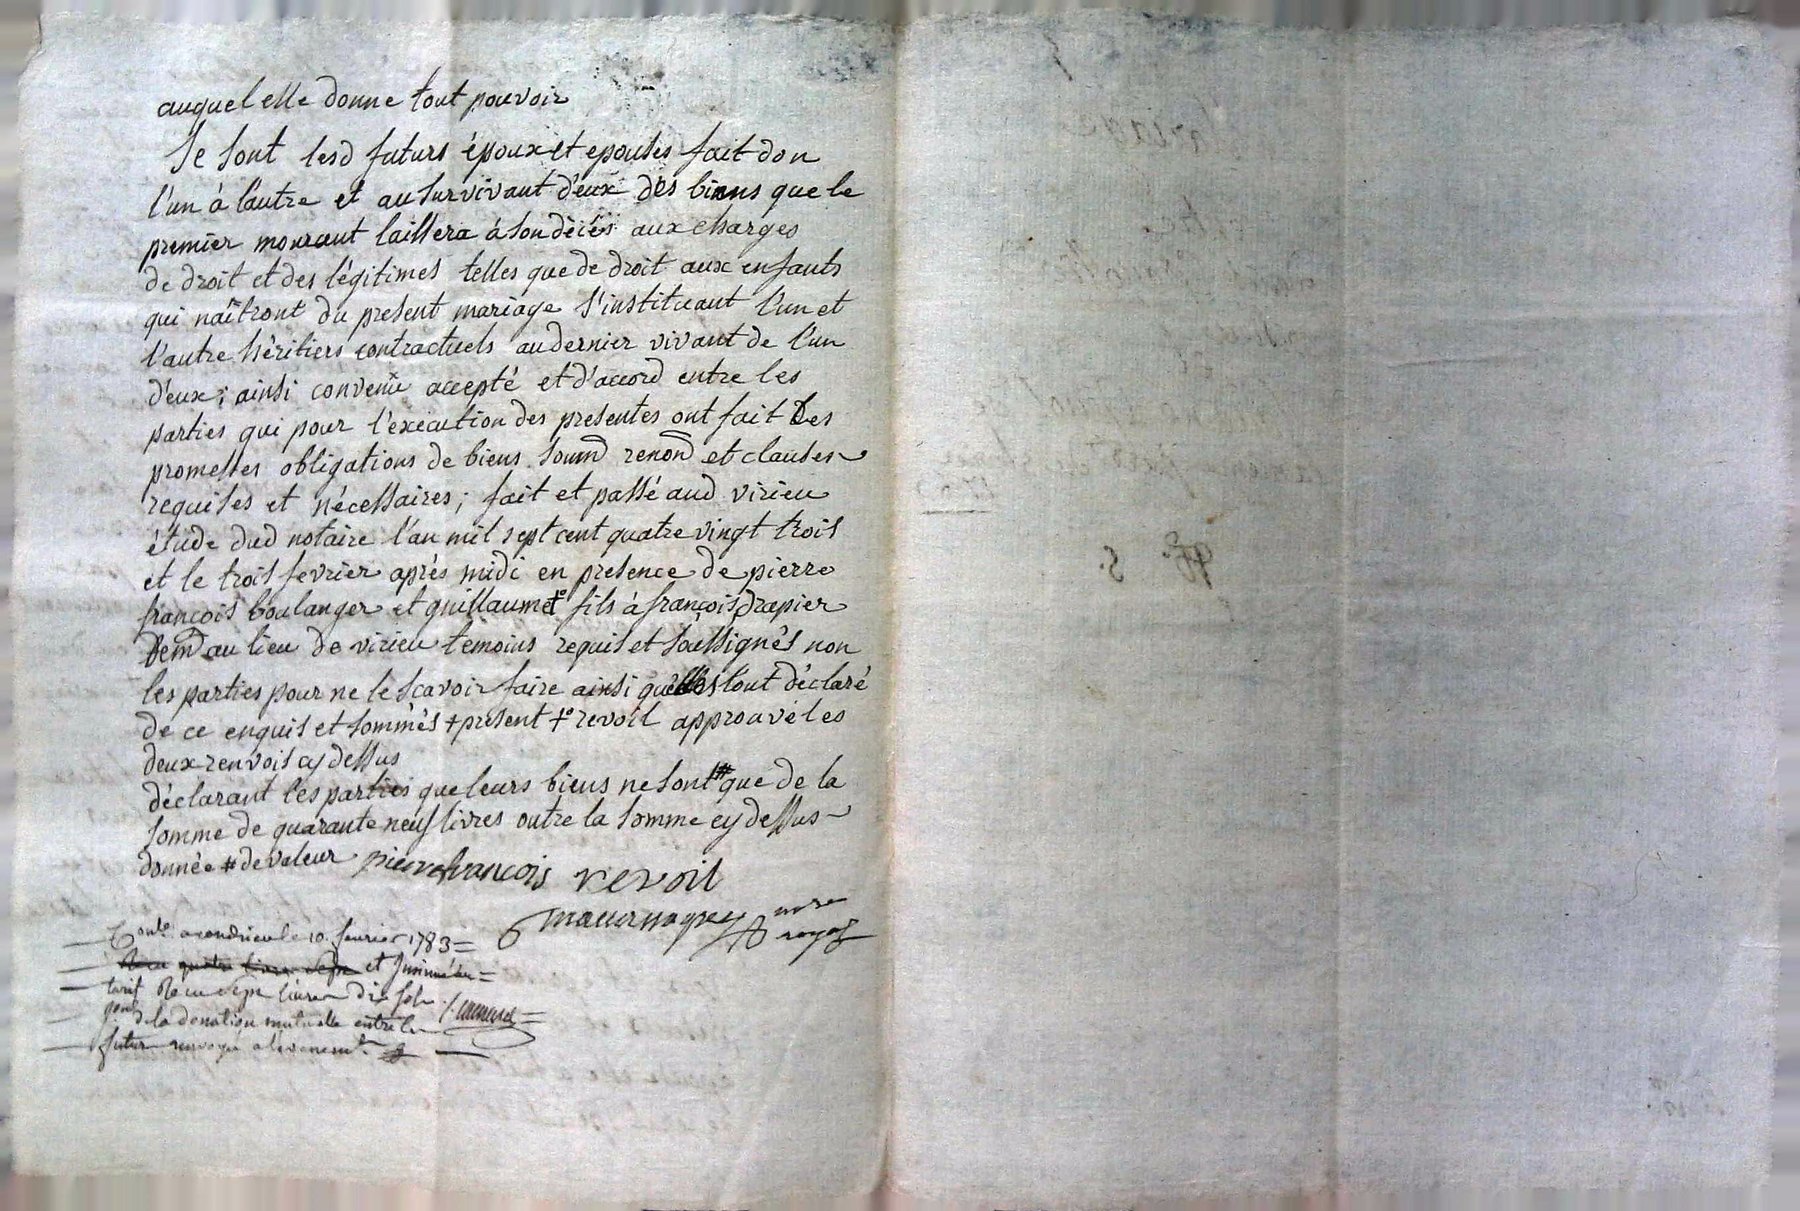 auquel elle donne tout pouvoir
Se sont lesd futurs époux et epouses fait don
l'un à l'autre et au survivant d'eux des biens que le
premier mourant laissera à son décès aux charges
de droit et des légitimes telles que de droit aux enfants
qui naîtront du present mariage s'instituant l'un et
l'autre héritiers contractuels au dernier vivant de l'un
d'eux; ainsi convenu accepté et d'accord entre les
parties qui pour l'exécution des presentes ont fait les
promesses obligations de biens soumd renond et clauses
requises et nécessaires; fait et passé aud virieu
étude dud notaire l'an mil sept cent quatre vingt trois
et le trois fevrier après midi en presence de pierre
françois boulanger et guillaume +° fils à françois drapier
demd au lieu de virieu temoins requis et soussignés non
les parties pour ne le scavoir faire ainsi qu'elles l'ont déclaré
de ce enquis et sommés + présent +° revoil approuvé les
deux renvois cy dessus
déclarant les parties que leurs biens ne sont # que de la
somme de quarante neuf livres outre la somme cy dessus
donnée # de valeur pierre francois revoil
nre
royal
Conlé a condrieu le 10 fevrier 1783
et Insinué au
tarif Recu sept livres dix sols
de la donation mutuelle entre les
futur renvoyé a levenemt